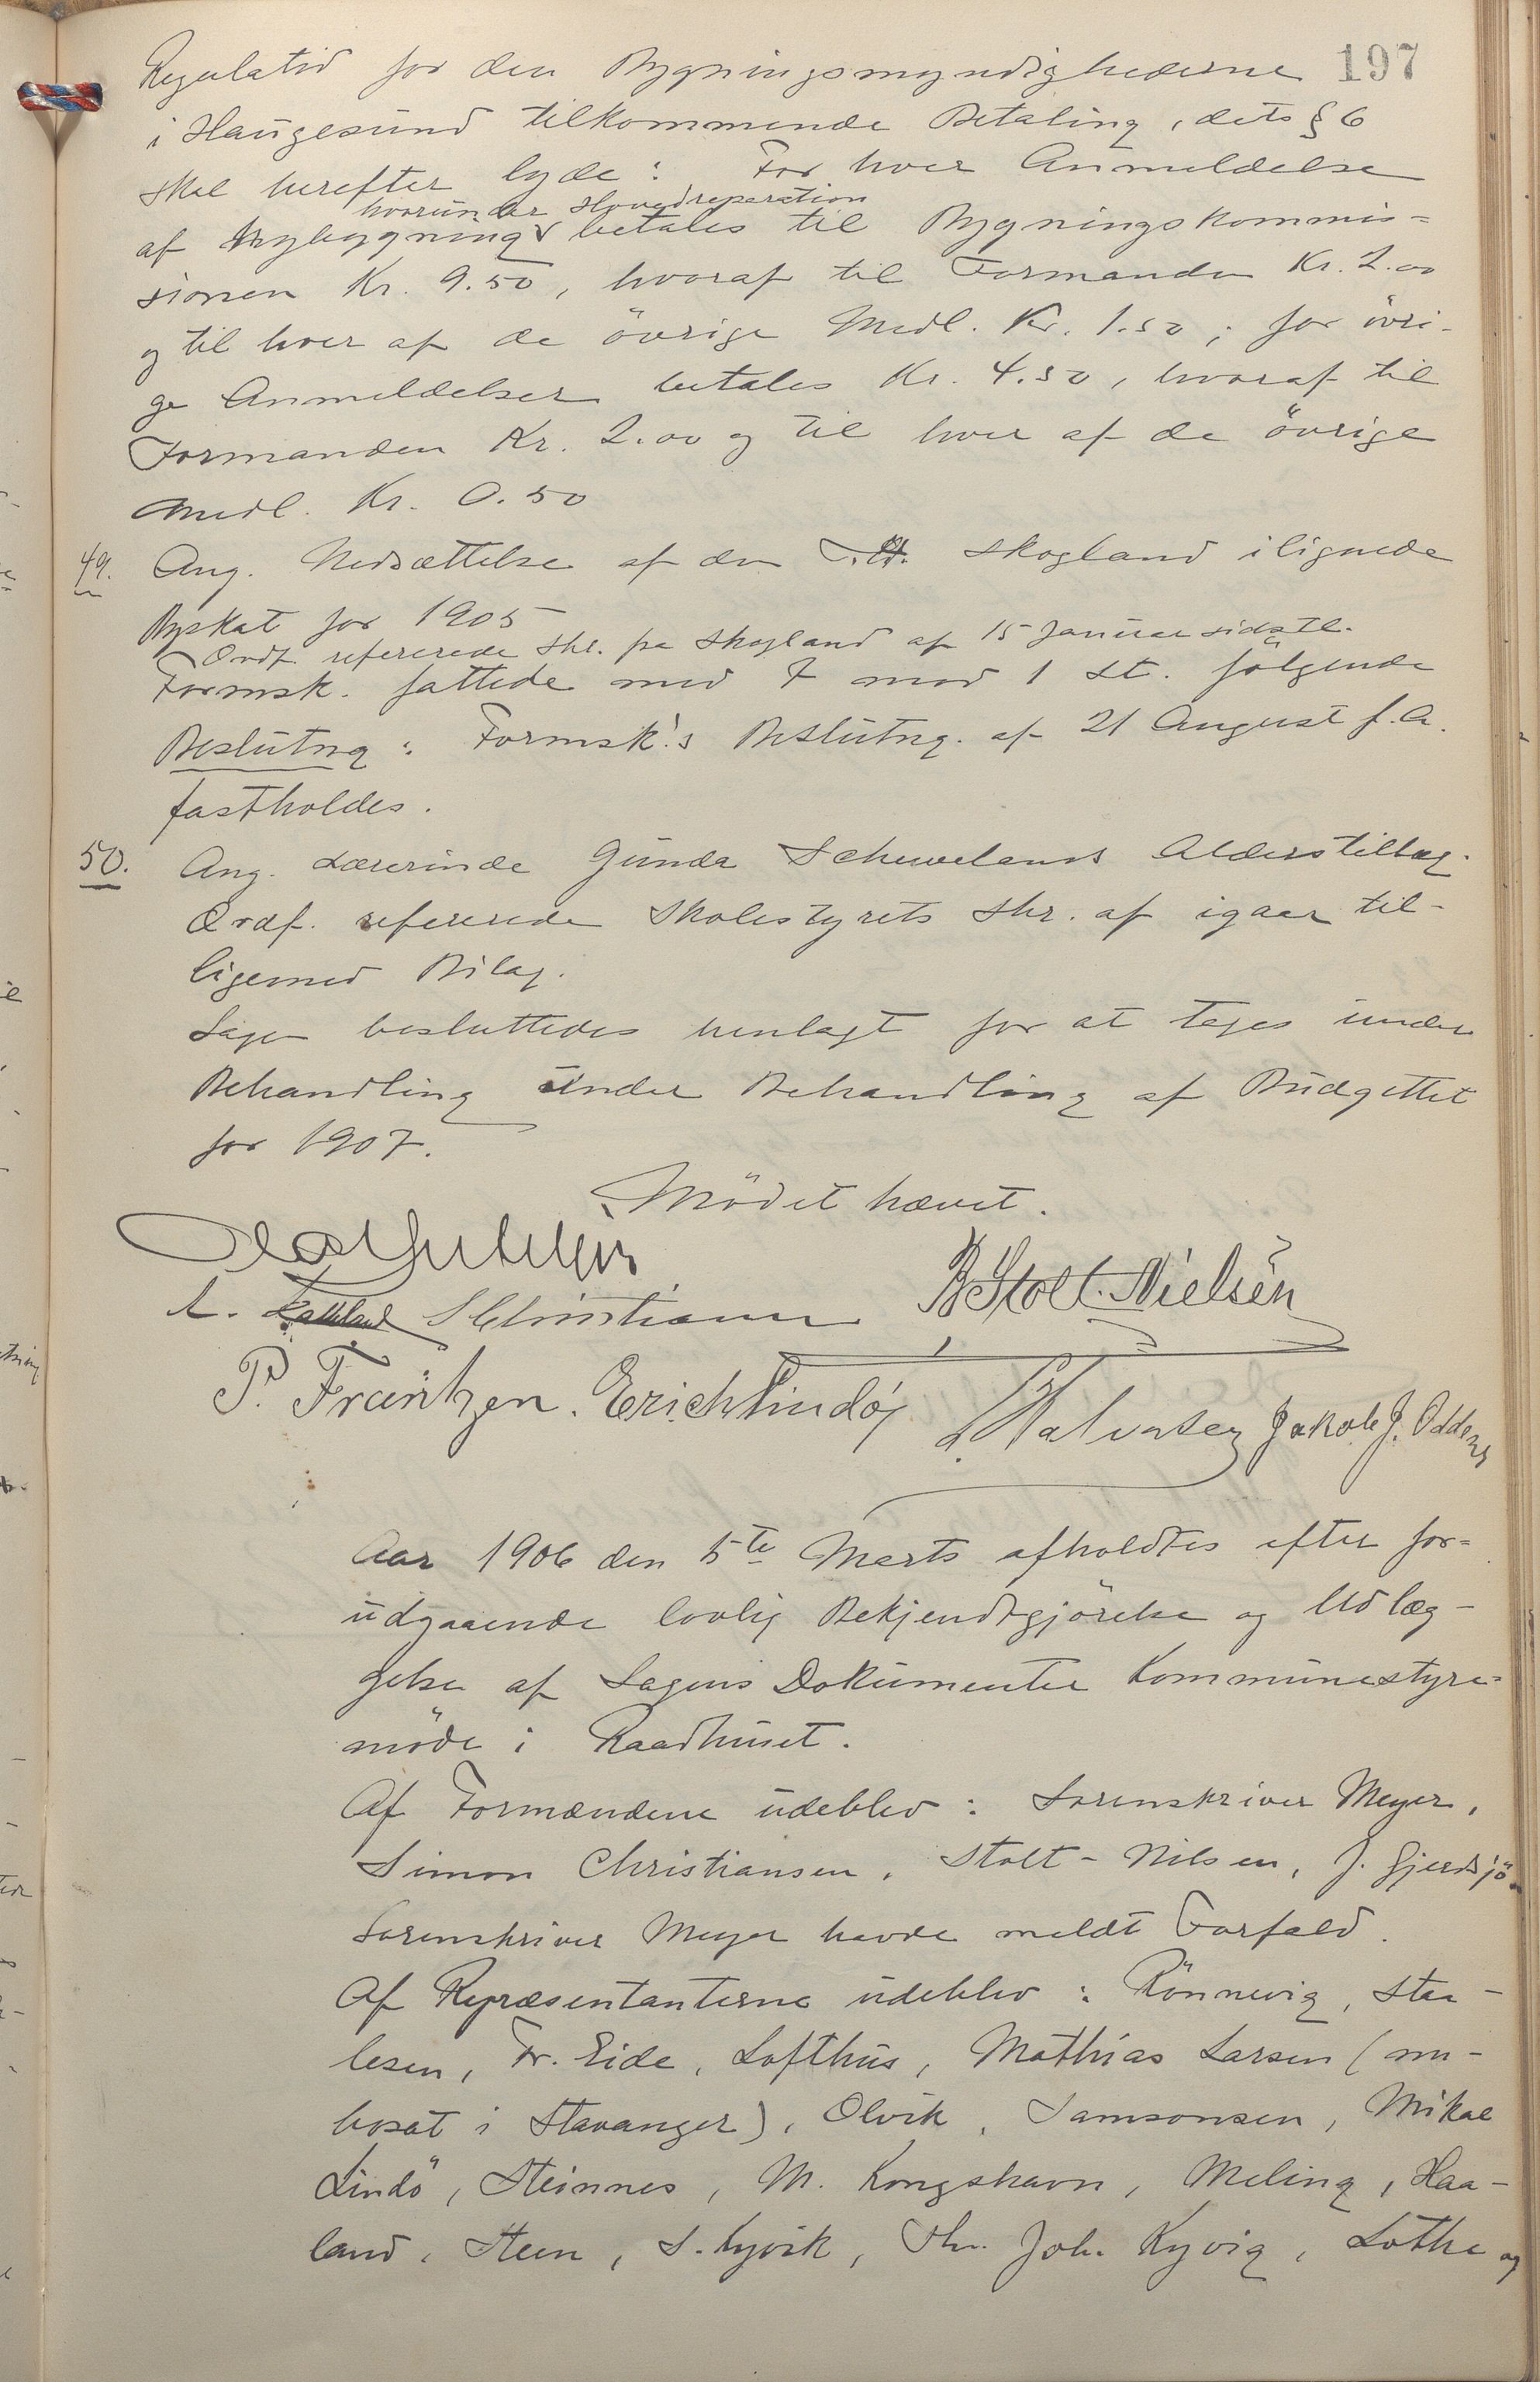 197
Regulativ for den Bygningsmyndighederne
i Haugesund tilkommende Betaling, dets § 6
skal herefter lyde: For hver Anmeldelse
hvorunder Hovedreparation
af Nybygning betales til Bygningskommis=
sionen Kr. 9.50, hvoraf til Formanden Kr. 2.00
og til hver af de övrige Medl. Kr. 1.50; for övri-
ge Anmeldelser betales Kr. 4.50, hvoraf til
Formanden Kr. 2.00 og til hver af de övrige
Medl. Kr. 0.50
49. Ang. Nedsættelse af den Skogland ilignede
Byskat for 1905
Ordf. refererede Skr. fra Skogland af 15 Januar sidstl.
Formsk. fattede med 7 mod 1 St. følgende
Beslutng: Formsk.'s Beslutng. af 21 August f.A.
fastholdes.
50. Ang. Lærerinde Gunda Schuvelands Alderstillæg.
Ordf. refererede Skolestyrets Skr. af igaar til-
ligemed Bilag.
Sagen besluttedes henlagt for at tages under
Behandling under Behandling af Budgettet
for 1907.
Mödet hævet.
B Stolt-Nielsen
S Christiansen
P. Frantzen. Erich Lindøj Halvorsen Jakob J. Oddens
Aar 1906 den 5te Marts afholdtes efter for=
udgaaende lovlig Bekjendtgjörelse og Udlæg-
gelse af Sagens Dokumenter Kommunestyre=
möde i Raadhuset.
Af Formændene udeblev: Sorenskriver Meyer,
Simon Christiansen, Stolt-Nilsen, J. Gjerdsjö.
Sorenskriver Meyer havde meldt Forfald.
Af Repræsentanterne udeblev: Rönnevig, Staa-
lesen, Fr. Eide, Lofthus, Mathias Larsen (nu-
bosat i Stavanger), Olvik, Samsonsen, Mikal
Lindö, Steinnes, M. Kongshavn, Meling, Haa-
land, Steen, S. Kyvik, Joh. Kyvig, Lothe og